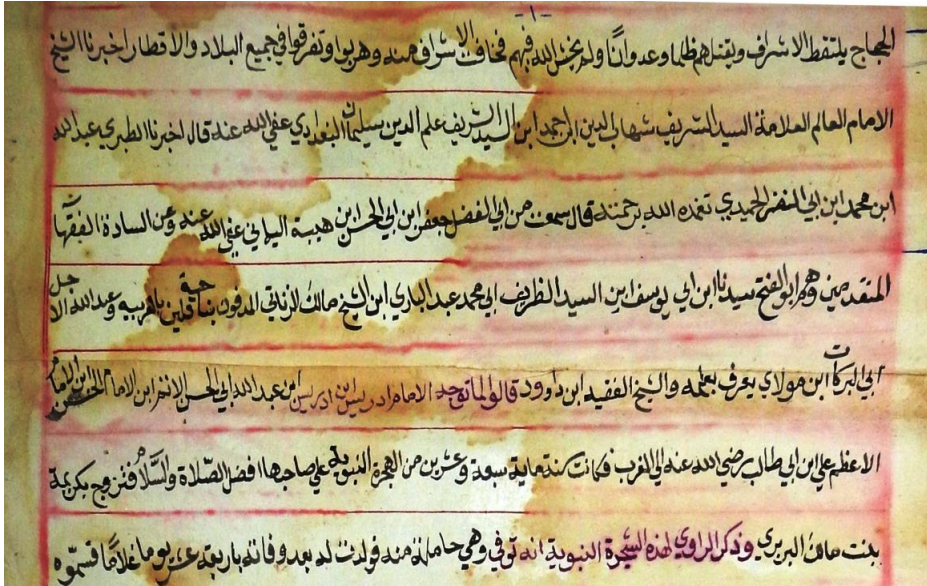 -١-
الحجاج يلتقط الاشراف ويقتلهم ظلما وعدوانًا ولم يخش الله فيهم فخافت الاشراف منه وهربوا وتفرقوا في جميع البلاد والاقطار اخبرنا الشيخ
الامام العالم العلامة السيد الشريف شهاب الدين ابن احمد ابن السيد الشريف علم الدين سليمان البغدادي عفى الله عنه قال اخبرنا الطبري عبد الله
ابن محمد ابن ابي المضفر الحميدي تغمده الله برحمته قال سمعت من ابي الفضل جعفر ابن ابي الحسن ابن هيبة اليماني عفى الله عنه وعن السادة الفقها
المتقدمين وهم ابو الفتح سيدنا ابن ابي يوسف ابن السيد الظريف ابي محمد عبد البدري ابن الشيخ مالك الزناتي المدفون وعبد الله
ابي البركات ابن مولاي يعرف بعلمه والشيخ الفقيه ابن داوود قالوا لما توجه الامام ادريس ابن ادريس ابن عبد الله ابي الحسن ابن الامام الحسن ابن الامام
الاعظم علي ابن ابي طالب رضي الله عنه الى المغرب فكانت سنة ماية سبعة وعشرين من الهجرة النبوية على صاحبها افضل الصّلاة والسَّلام فتزوج بكريمة
بنت مالك البربري وذكر الراوي لهذه الشجرة النبوية انه توفي وهي حاملة منه فولدت له بعد وفاته باربعة عشر يوما غلامًا فسمّوه